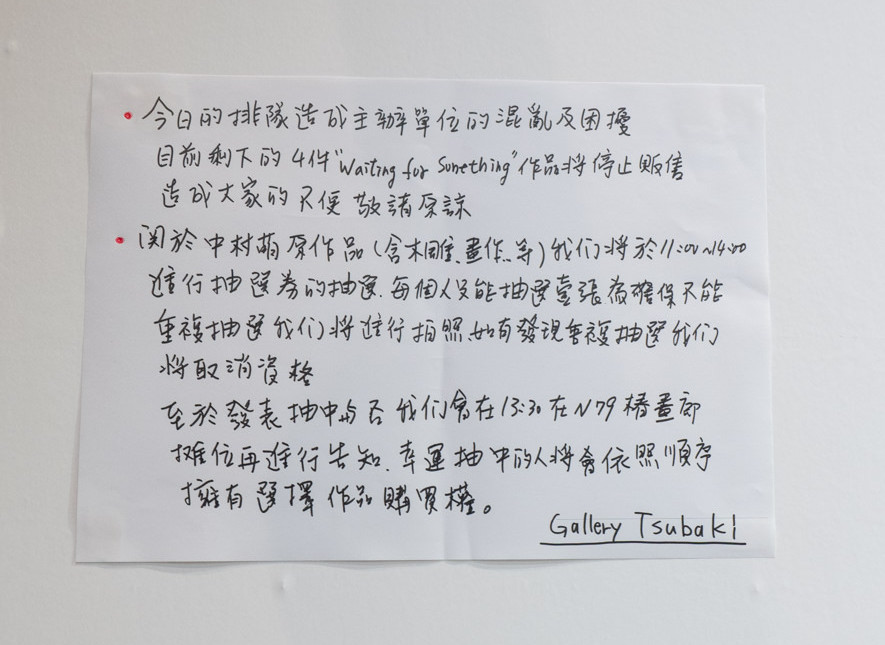 • 今日的排隊造成主辦單位的混亂及困擾
目前剩下的4件"Waiting for Something"作品將停止販售
造成大家的不便 敬請原諒
• 関於中村萌原作品(含木雕、畫作、等)我们将於11:00~14:00
進行抽選券的抽選、每個人只能抽選壹張、為確保不能
重複抽選我们將進行拍照、如有發現重複抽選我们
將取消資格
至於發表抽中與否我们會在13:30在N79椿畫廊
攤位再進行告知、幸運抽中的人將會依照順序
擁有選擇作品購買權。
Gallery Tsubaki